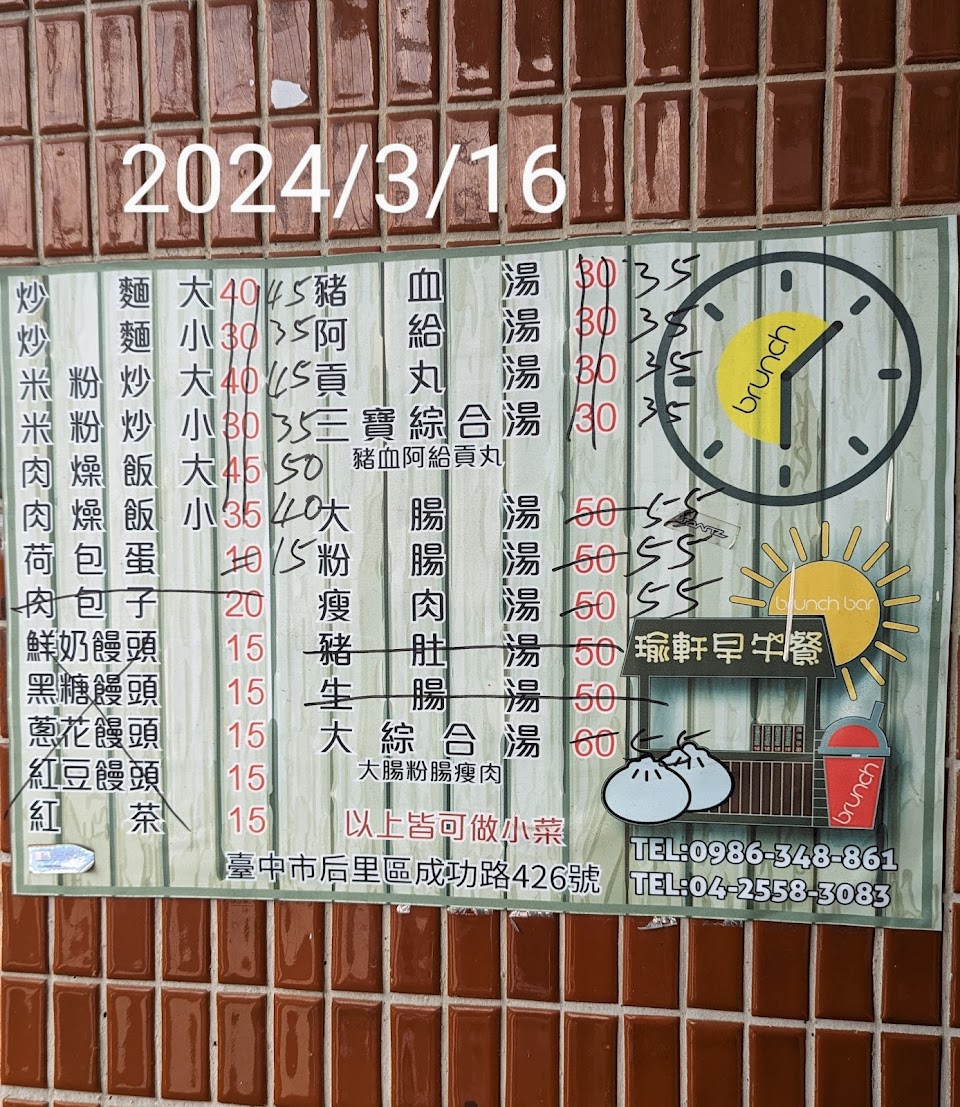 2024/3/16
炒麵大 40 45
炒麵小 30 35
米粉炒大 40 45
米粉炒小 30 35
肉燥飯大 45 50
肉燥飯小 35 40
荷包蛋 10 15
肉包子 20
鮮奶饅頭 15
黑糖饅頭 15
蔥花饅頭 15
紅豆饅頭 15
紅茶 15
豬血湯 30 35
阿給湯 30 35
貢丸湯 30 35
三寶綜合湯 30 35
豬血阿給貢丸
大腸湯 50 55
粉腸湯 50 55
瘦肉湯 50 55
豬肚湯 50
生腸湯 50
大綜合湯 60 55
大腸粉腸瘦肉
以上皆可做小菜
臺中市后里區成功路426號
brunch
brunch bar
瑜軒早午餐
brunch
TEL:0986-348-861
TEL:04-2558-3083